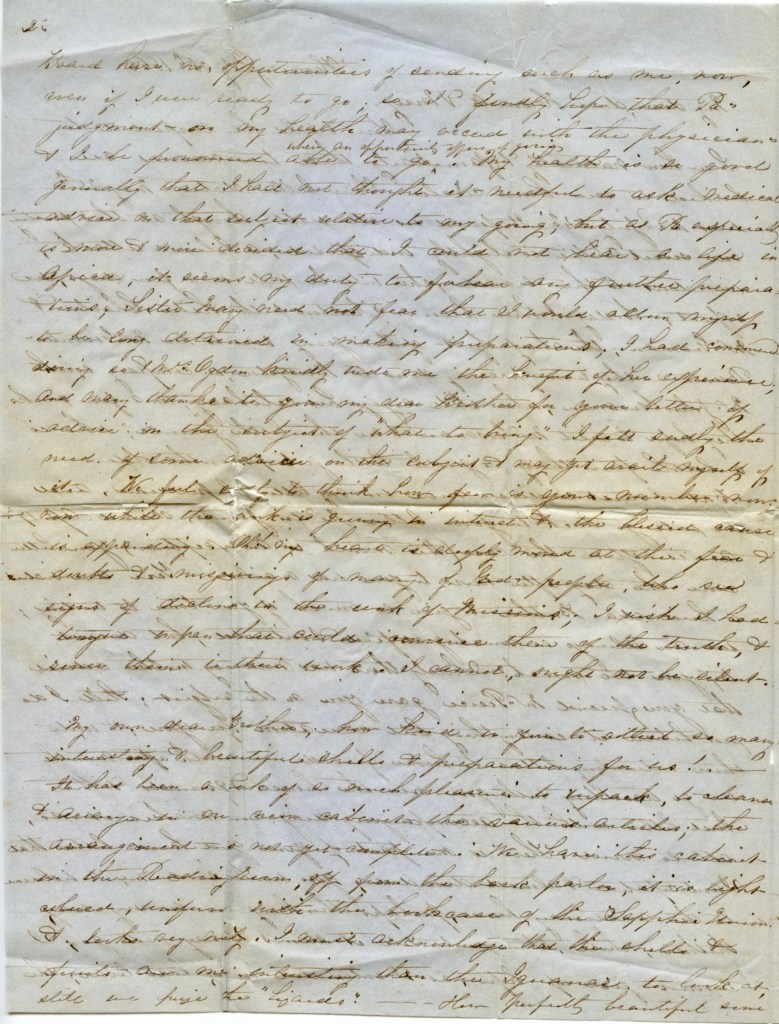 Board have no opportunities of sending such as me, now,
even if I were ready to go; so I fondly hope that Pa's
judgment on my health may accord with the physician's
when an opportunity offers of going
& I be pronounced able to go. My health is so good
generally that I had not thought it needful to ask medical
advice on that subject relative to my going, but as Pa especially
is more & more decided that I could not bear a life in
Africa, it seems my duty to forbear any further prepara-
tions. Sister Mary need not fear that I would allow myself
to be long detained in making preparations, I had commenced
doing so & Mrs Ogden kindly gave me the benefit of her experience,
and many thanks to you my dear Brother for your letter of
advice on the subject of "what to bring" I felt sadly the
need of some advice on the subject & may yet avail myself of
it. We feel to think how few is your number now
now while the work is growing in interest & the blessed cause
is appealing. Oh! my heart is deeply moved at the fears &
doubts & misgivings of many of God's people, who see
signs of decline in the work of Missions; I wish I had a
tongue or pen that could convince them of the truth, &
them in their work. I cannot, ought not be silent.
My own dear Brother, how kind in you to collect so many
interesting & beautiful shells & preparations for us! —
It has been a work of so much pleasure to unpack, to cleanse
& arrange in our own cabinet the various articles; the
arrangement is not yet complete. We have this cabinet
in the Reading Room, off from the back parlor, it is light
uniform with the bookcase of the Sapphic Union
& looks very neat. I must acknowledge that the shells &
fruits are more interesting than the Iguanas, to look at,
still we prize the "lizards". — — How perfectly beautiful some